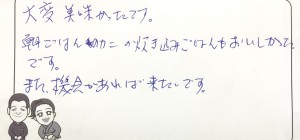 大変美味かったです。
朝ごはんのカニの炊き込みごはんもおいしかった
です。
また、機会があれば来たいです。